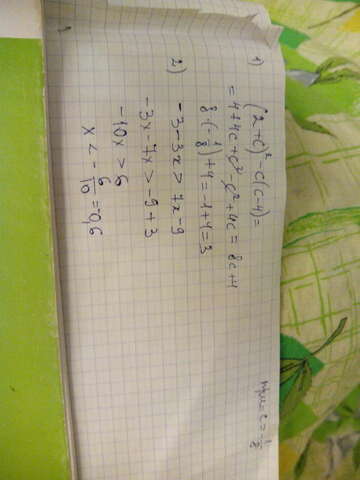 1) (2+c)² - c(c-4) =
= 4+4c+c² - c² + 4c = 8c+4
8·(-1/8)+4 = -1+4 = 3
2) -3-3x > 7x-9
-3x-7x > -9+3
-10x > 6
x < -6/10 = 0,6
c = -1/8